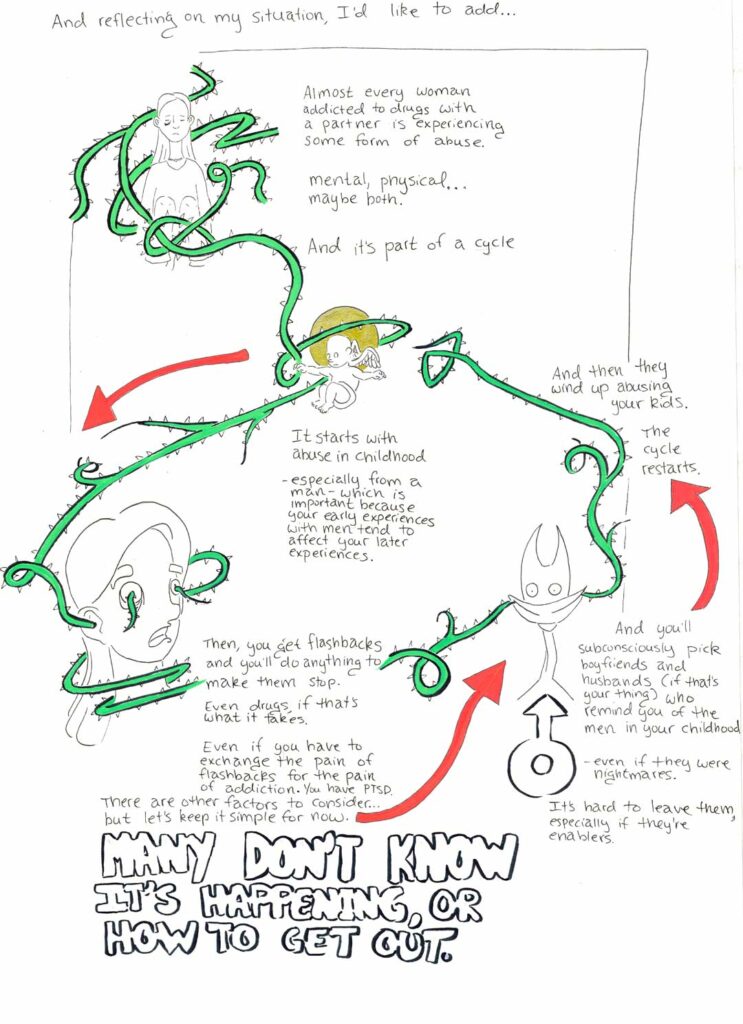 And reflecting on my situation, I'd like to add...
Almost every woman
addicted to drugs with
a partner is experiencing
some form of abuse.
mental, physical...
maybe both.
And it's part of a cycle
It starts with
abuse in childhood
- especially from a
man - which is
important because
your early experiences
with men tend to
affect your later
experiences.
Then, you get flashbacks
and you'll do anything to
make them stop.
Even drugs, if that's
what it takes.
Even if you have to
exchange the pain of
flashbacks for the pain
of addiction. You have PTSD.
There are other factors to consider...
but let's keep it simple for now.
And you'll
subconsciously pick
boyfriends and
husbands (if that's
your thing) who
remind you of the
men in your childhood
- even if they were
nightmares.
It's hard to leave them,
especially if they're
enablers.
And then they
wind up abusing
your kids.
The
cycle
restarts.
MANY DON'T KNOW
IT'S HAPPENING, OR
HOW TO GET OUT.